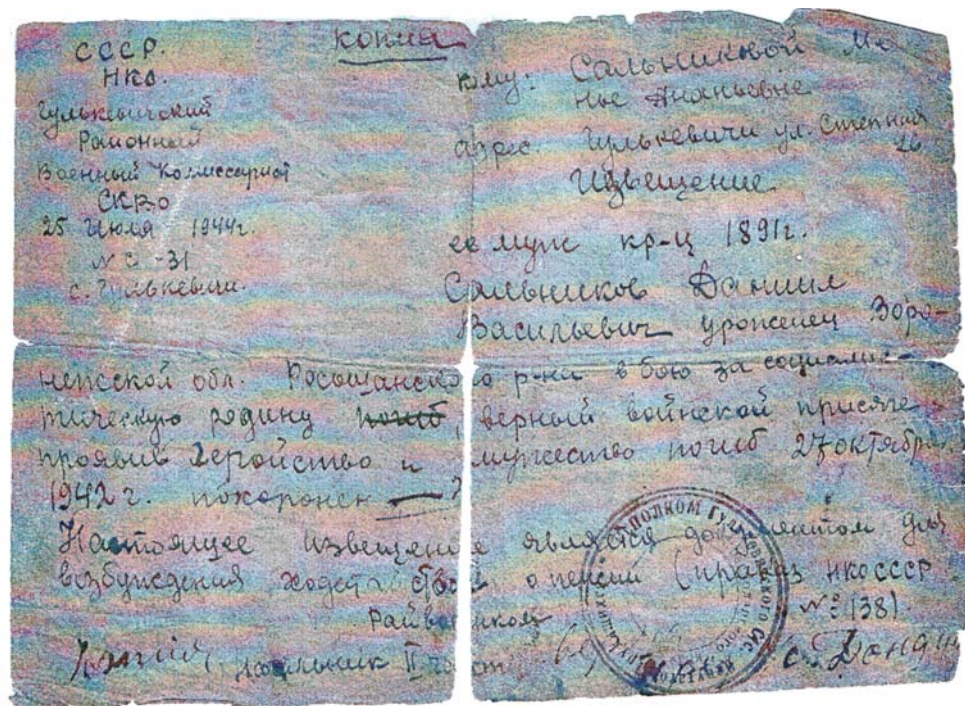 СССР.
НКО.
Гулькевичский
Районный
Военный Комиссариат
СКВО
25 Июля 1944г.
№ 2-31
с. Гулькевичи.
копия
кому: Сальниковой Ма
нье Ананьевне
адрес Гулькевичи ул. Степная
26
Извещение
ее муж кр-ц 1891г.
Сальников Даниил
Васильевич уроженец Воро-
нежской обл. Росошанского р-на в бою за социалис-
тическую родину погиб, верный воинской присяге
проявив геройство и мужество погиб 27 октября
1942 г. похоронен —
Настоящее извещение является документом для
возбуждения ходат о пенсии (приказ НКО СССР
№ 138)
Райвоенком
копия начальник II част